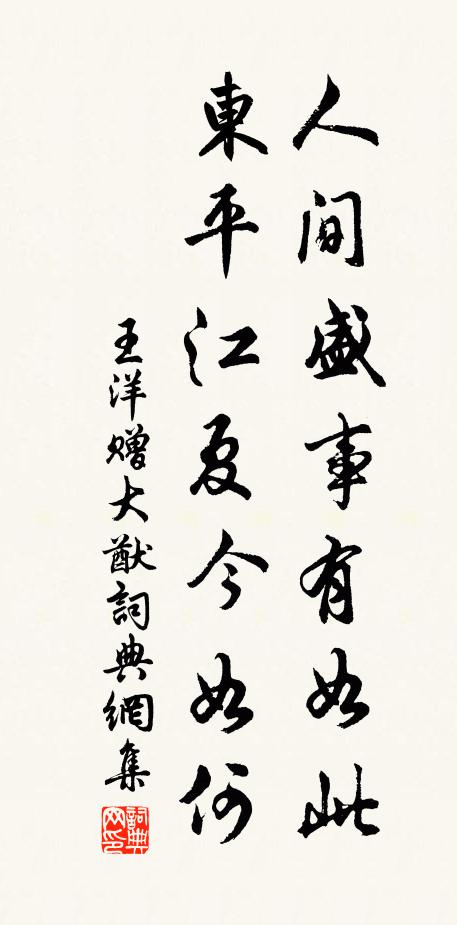 人间盛事有如此
東平江夏今如何
王洋赠大猷詞典網集
詞典网印